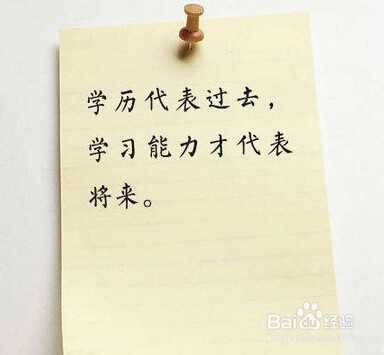 学历代表过去，
学习能力才代表
将来。
Baidu经验